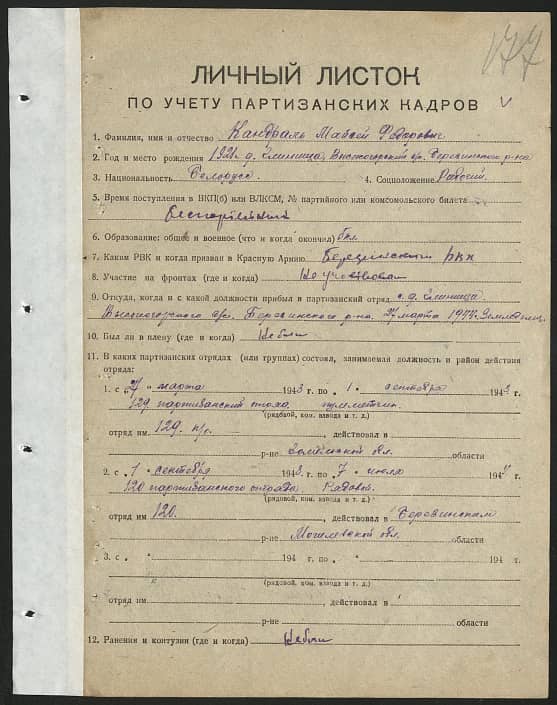 177
ЛИЧНЫЙ ЛИСТОК
ПО УЧЕТУ ПАРТИЗАНСКИХ КАДРОВ
1. Фамилия, имя и отчество Кандраль Матвей Федорович
2. Год и место рождения д. Высокогорский с/с. Березинского р-на
3. Национальность Белорусс. 4. Соцположение Рабочий.
5. Время поступления в ВКП(б) или ВЛКСМ, № партийного или комсомольского билета
беспартийный
6. Образование: общее и военное (что и когда окончил) 6 кл.
7. Каким РВК и когда призван в Красную Армию Березинским рвк
8. Участие на фронтах (где и когда) Не участвовал
9. Откуда, когда и с какой должности прибыл в партизанский отряд с д.
Высокогорского с/с. Березинского р-на. 27 марта
10. Был ли в плену (где и когда) Не был
11. В каких партизанских отрядах (или группах) состоял, занимаемая должность и район действия
отряда:
1. с „27 „ марта 1943 г. по „ 1 „ сентября 1943 г.
129 партизанский пулеметчик.
(рядовой, ком. взвода и т. д.)
отряд им. 129. п/о. , действовал в
р-не обл. области
2. с „1 „ сентября 1943 г. по „ 7 „ июля 194 г.
120 партизанского отряда Рядовой.
(рядовой, ком. взвода и т. д.)
отряд им 120. , действовал в Березинском
р-не Могилевской обл. области
3. с „ „ 194 г. по „ „ 194 г.
(рядовой, ком. взвода и т. д.)
отряд им. , действовал в
р-не области
12. Ранения и контузии (где и когда) Не был